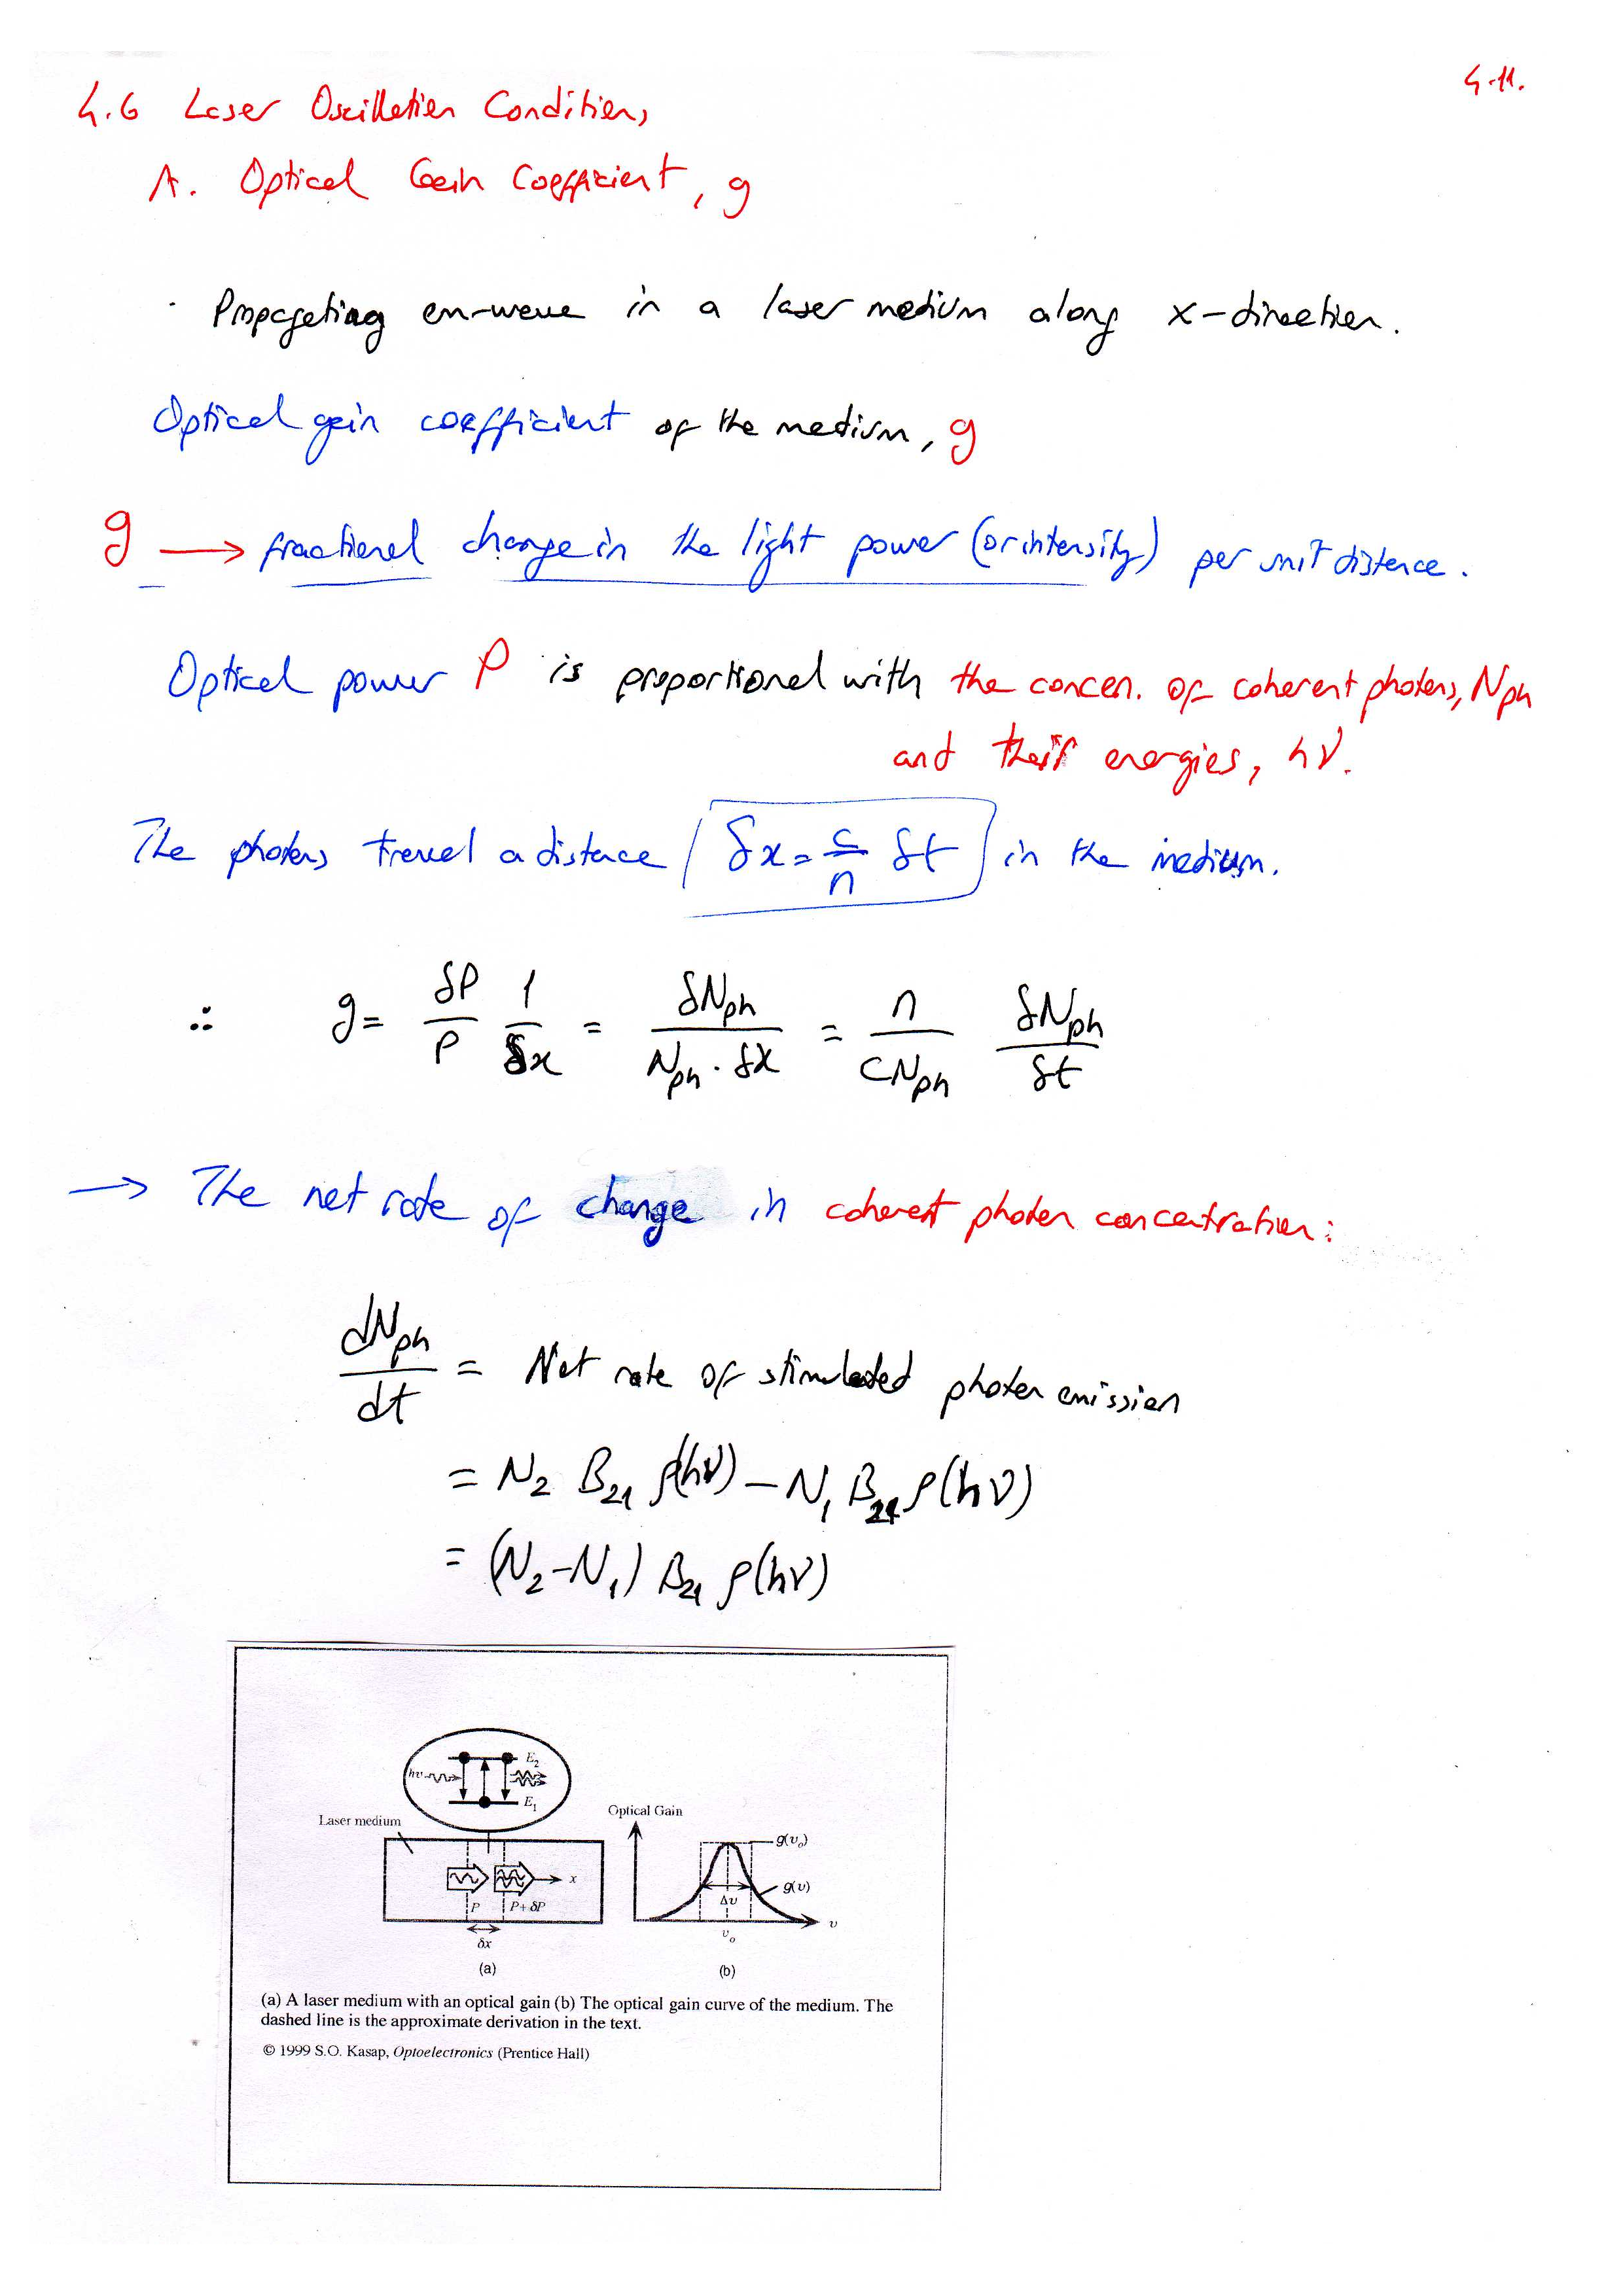 4.11.
4.6 Laser Oscillation Conditions
A. Optical Gain Coefficient, g
· Propagating em-wave in a laser medium along x-direction.
Optical gain coefficient of the medium, g
g → fractional change in the light power (or intensity) per unit distance.
Optical power P is proportional with the concen. of coherent photons, Nph
and their energies, hν.
The photons travel a distance δx = c/n δt in the medium.
∴ g = δP/P 1/δx = δNph/(Nph · δx) = n/(cNph) δNph/δt
→ The net rate of change in coherent photon concentration:
dNph/dt = Net rate of stimulated photon emission
= N₂ B₂₁ ρ(hν) – N₁ B₂₁ ρ(hν)
= (N₂–N₁) B₂₁ ρ(hν)
hυ
E₂
E₁
Laser medium
P
P+ δP
x
δx
(a)
Optical Gain
g(υₒ)
g(υ)
Δυ
υ
υₒ
(b)
(a) A laser medium with an optical gain (b) The optical gain curve of the medium. The
dashed line is the approximate derivation in the text.
© 1999 S.O. Kasap, Optoelectronics (Prentice Hall)